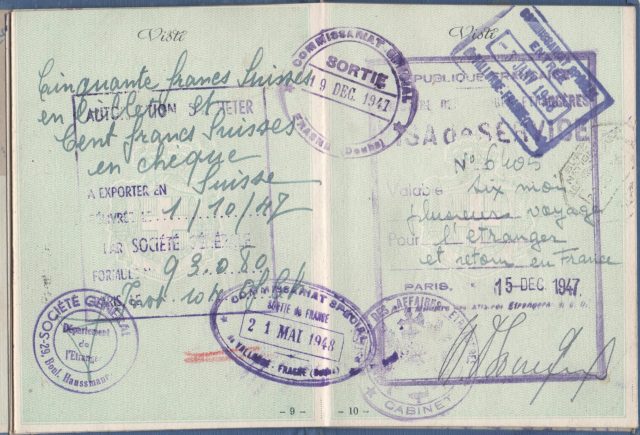 Visti
Cinquante francs Suisses
en billets et
AUTORISATION D'ACHETER
Cent francs Suisses
en chèque
Suisse
A EXPORTER EN
DÉLIVRÉE LE 1/10/47
PAR SOCIÉTÉ GÉNÉRALE
FORMULE N° 93.080
PARIS, le
SOCIÉTÉ GÉNÉRALE
Département
de
l'Etranger
29, Boul. Haussmann
COMMISSARIAT SPECIAL
SORTIE
19 DEC. 1947
FRASNE (Doubs)
COMMISSARIAT SPECIAL
SORTIE de FRANCE
21 MAI 1948
VALLORBE-FRASNE (Doubs)
- 9 -
Visti
ENTRÉE
VALLORBE-FRASNE
RÉPUBLIQUE FRANÇAISE
ÉTRANGÈRES
VISA DE SERVICE
N° 6405
Valable six mois
plusieurs voyages
Pour l'étranger
et retour en France
PARIS. 15 DEC. 1947
DES AFFAIRES ETRANGÈRES
CABINET
- 10 -